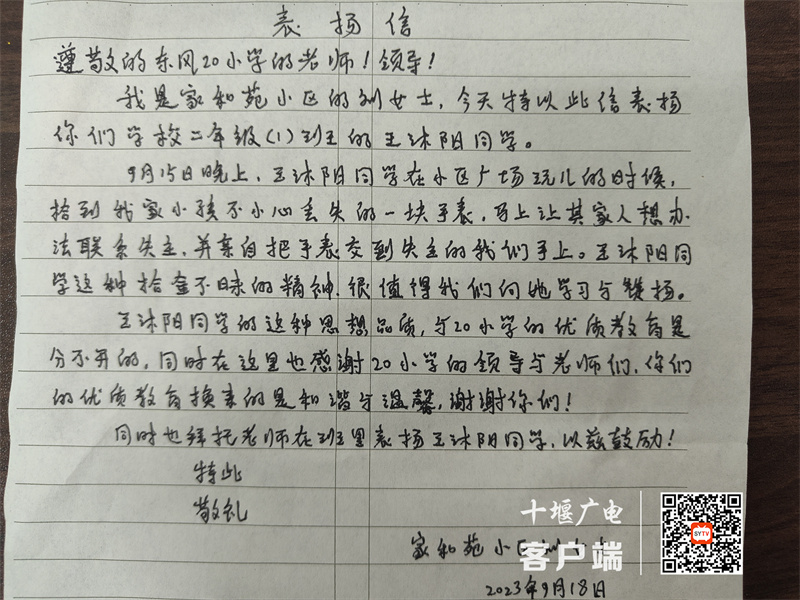 表扬信
遵敬的东风20小学的老师！领导！
我是家和苑小区的刘女士，今天特以此信表扬
你们学校二年级(1)班的王沐阳同学。
9月15日晚上，王沐阳同学在小区广场玩儿的时候，
拾到我家小孩不小心丢失的一块手表，马上让其家人想办
法联系失主，并亲自把手表交到失主的我们手上。王沐阳同
学这种拾金不昧的精神，很值得我们向她学习与赞扬。
王沐阳同学的这种思想品质，与20小学的优质教育是
分不开的，同时在这里也感谢20小学的领导与老师们，你们
的优质教育换来的是和谐与温馨，谢谢你们！
同时也拜托老师在班里表扬王沐阳同学，以兹鼓励！
特此
敬礼
家和苑小区
2023年9月18日
十堰广电
客户端
SYTV